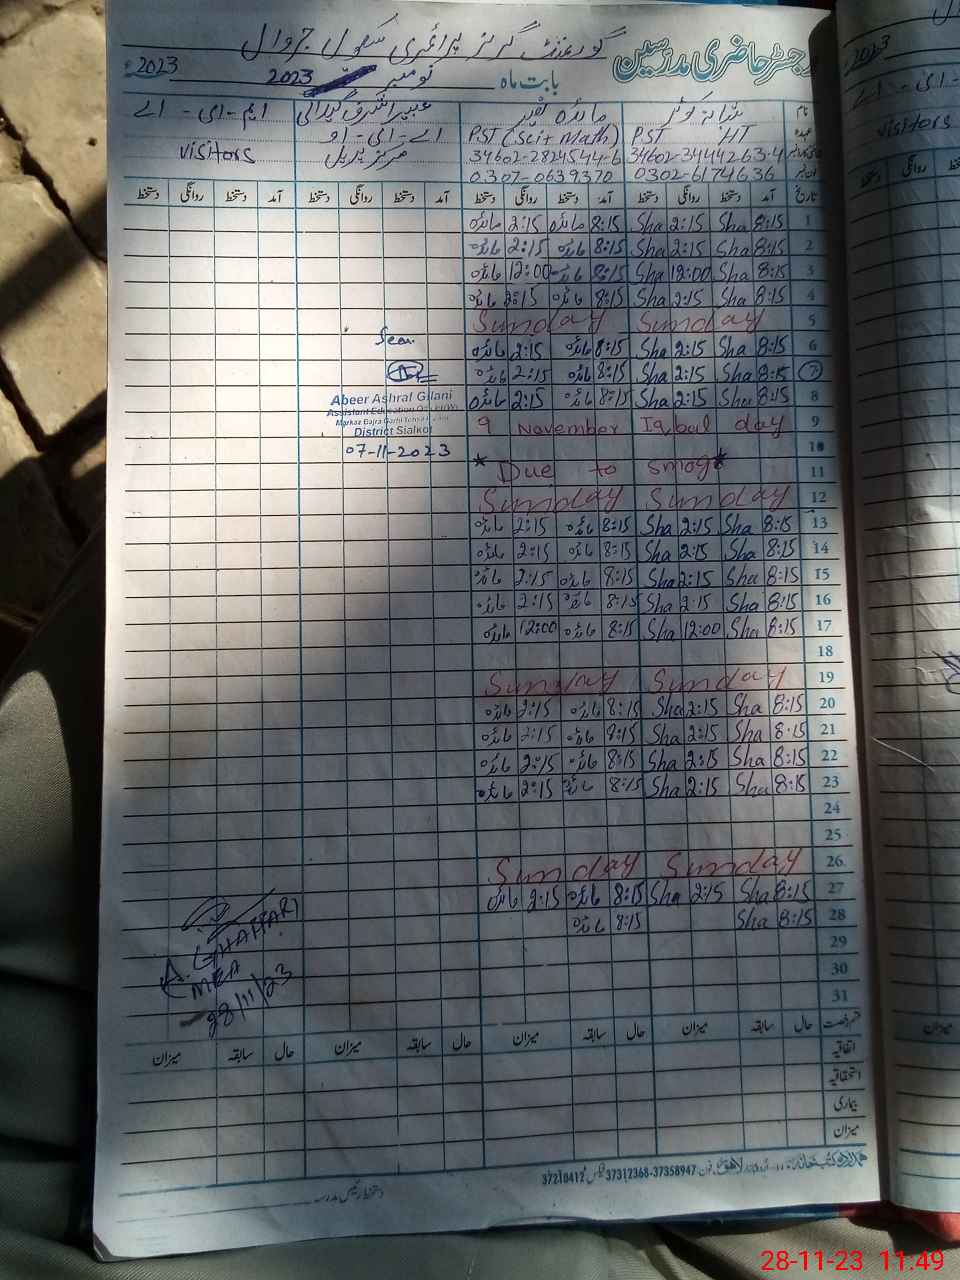 رجسٹر حاضری مدرسین گورنمنٹ گرلز پرائمری سکول
بابت ماہ نومبر 2023 2023
نام شبانہ کوثر مائدہ عبیر اشرف گیلانی ایم-ای-اے
عہدہ PST HT PST (Sci+Math) اے-ای-او visitors
34602-3444263-4 34602-2824544-6 مرکز
0302-6174636 0307-0639370
تاریخ آمد دستخط روانگی دستخط آمد دستخط روانگی دستخط آمد دستخط روانگی دستخط آمد دستخط روانگی دستخط
1 8:15 Sha 2:15 Sha 8:15 مائدہ 2:15 مائدہ
2 8:15 Sha 2:15 Sha 8:15 مائدہ 2:15 مائدہ
3 8:15 Sha 12:00 Sha 8:15 مائدہ 12:00 مائدہ
4 8:15 Sha 2:15 Sha 8:15 مائدہ 2:15 مائدہ
5 Sunday Sunday
6 8:15 Sha 2:15 Sha 8:15 مائدہ 2:15 مائدہ
7 8:15 Sha 2:15 Sha 8:15 مائدہ 2:15 مائدہ
8 8:15 Sha 2:15 Sha 8:15 مائدہ 2:15 مائدہ
9 9 November Iqbal day
10
11 * Due to smog *
12 Sunday Sunday
13 8:15 Sha 2:15 Sha 8:15 مائدہ 2:15 مائدہ
14 8:15 Sha 2:15 Sha 8:15 مائدہ 2:15 مائدہ
15 8:15 Sha 2:15 Sha 8:15 مائدہ 2:15 مائدہ
16 8:15 Sha 2:15 Sha 8:15 مائدہ 2:15 مائدہ
17 8:15 Sha 12:00 Sha 8:15 مائدہ 12:00 مائدہ
18
19 Sunday Sunday
20 8:15 Sha 2:15 Sha 8:15 مائدہ 2:15 مائدہ
21 8:15 Sha 2:15 Sha 8:15 مائدہ 2:15 مائدہ
22 8:15 Sha 2:15 Sha 8:15 مائدہ 2:15 مائدہ
23 8:15 Sha 2:15 Sha 8:15 مائدہ 2:15 مائدہ
24
25
26 Sunday Sunday
27 8:15 Sha 2:15 Sha 8:15 مائدہ 2:15 مائدہ
28 8:15 Sha 8:15 مائدہ
29
30
31
Seen
Abeer Ashraf Gilani
Assistant Education Officer(W)
Markaz Bajra Garhi
District Sialkot
07-11-2023
A. GHAFFAR
MEA
28/11/23
قسم رخصت حال سابقہ میزان حال سابقہ میزان حال سابقہ میزان حال سابقہ میزان
اتفاقیہ
استحقاقیہ
بیماری
میزان
لاہور فون 37312368-37358947 فیکس 37210412
دستخط رئیس مدرسہ
28-11-23 11:49